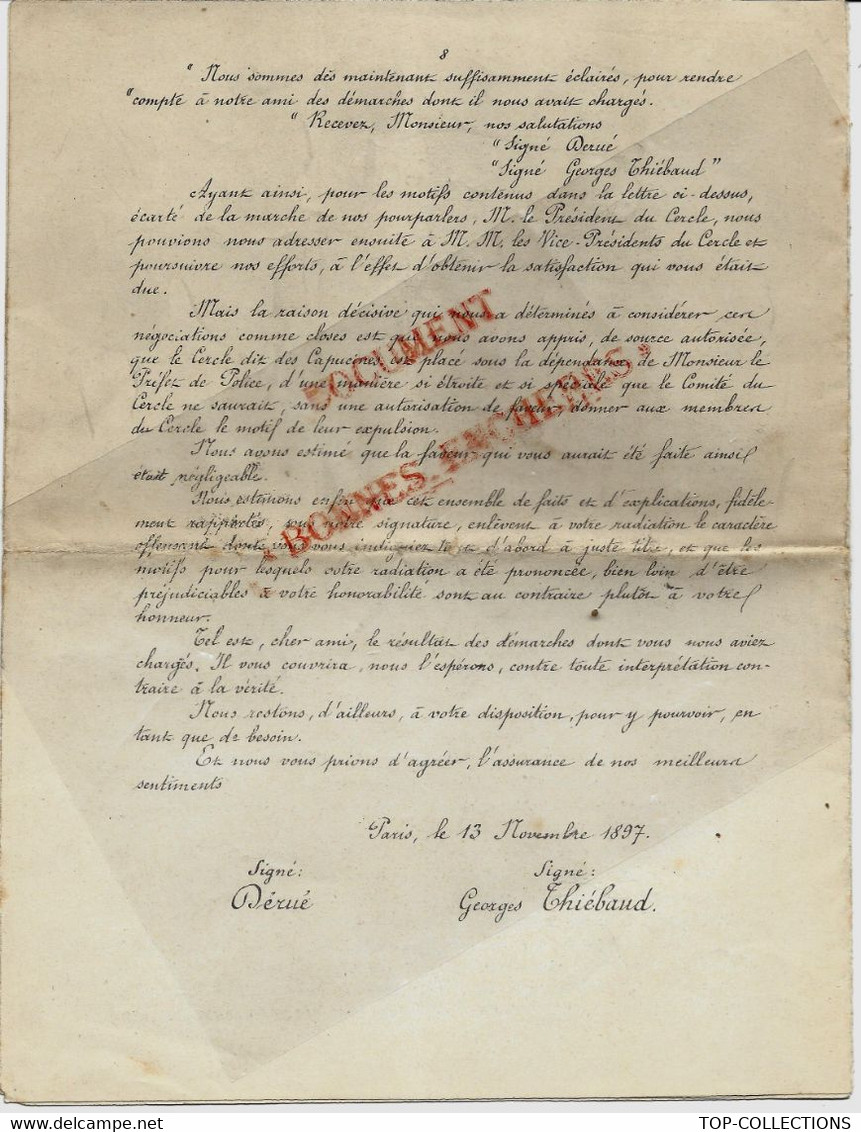 8
" Nous sommes dès maintenant suffisamment éclairés, pour rendre
"compte à notre ami des démarches dont il nous avait chargés.
" Recevez, Monsieur, nos salutations
" Signé Derué
" Signé Georges Thiébaud "
Ayant ainsi, pour les motifs contenus dans la lettre ci-dessus,
écarté de la marche de nos pourparlers, M. le Président du Cercle, nous
pouvions nous adresser ensuite à M. M. les Vice-Présidents du Cercle et
poursuivre nos efforts, à l'effet d'obtenir la satisfaction qui vous était
due.
Mais la raison décisive qui nous a déterminés à considérer ces
négociations comme closes est que nous avons appris, de source autorisée,
que le Cercle dit des Capucines est placé sous la dépendance de Monsieur le
Préfet de Police, d'une manière si étroite et si spéciale que le Comité du
Cercle ne saurait, sans une autorisation de faveur, donner aux membres
du Cercle le motif de leur expulsion.
Nous avons estimé que la faveur qui vous aurait été faite ainsi
était négligeable.
Nous estimons enfin que cet ensemble de faits et d'explications, fidèle-
ment rapportés, sous notre signature, enlèvent à votre radiation le caractère
offensant dont vous vous indigniez tout d'abord à juste titre, et que les
motifs pour lesquels votre radiation a été prononcée, bien loin d'être
préjudiciables à votre honorabilité sont au contraire plutôt à votre
honneur.
Tel est, cher ami, le résultat des démarches dont vous nous aviez
chargés. Il vous couvrira, nous l'espérons, contre toute interprétation con-
traire à la vérité.
Nous restons, d'ailleurs, à votre disposition, pour y pourvoir, en
tant que de besoin.
Et nous vous prions d'agréer, l'assurance de nos meilleurs
sentiments
Paris, le 13 Novembre 1897.
Signé: Signé:
Dérué Georges Thiébaud.
DOCUMENT
* BONNES_ENCHERES *
TOP-COLLECTIONS